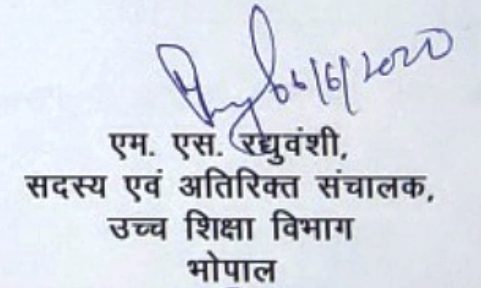 06/6/2020
एम. एस. रघुवंशी,
सदस्य एवं अतिरिक्त संचालक,
उच्च शिक्षा विभाग
भोपाल